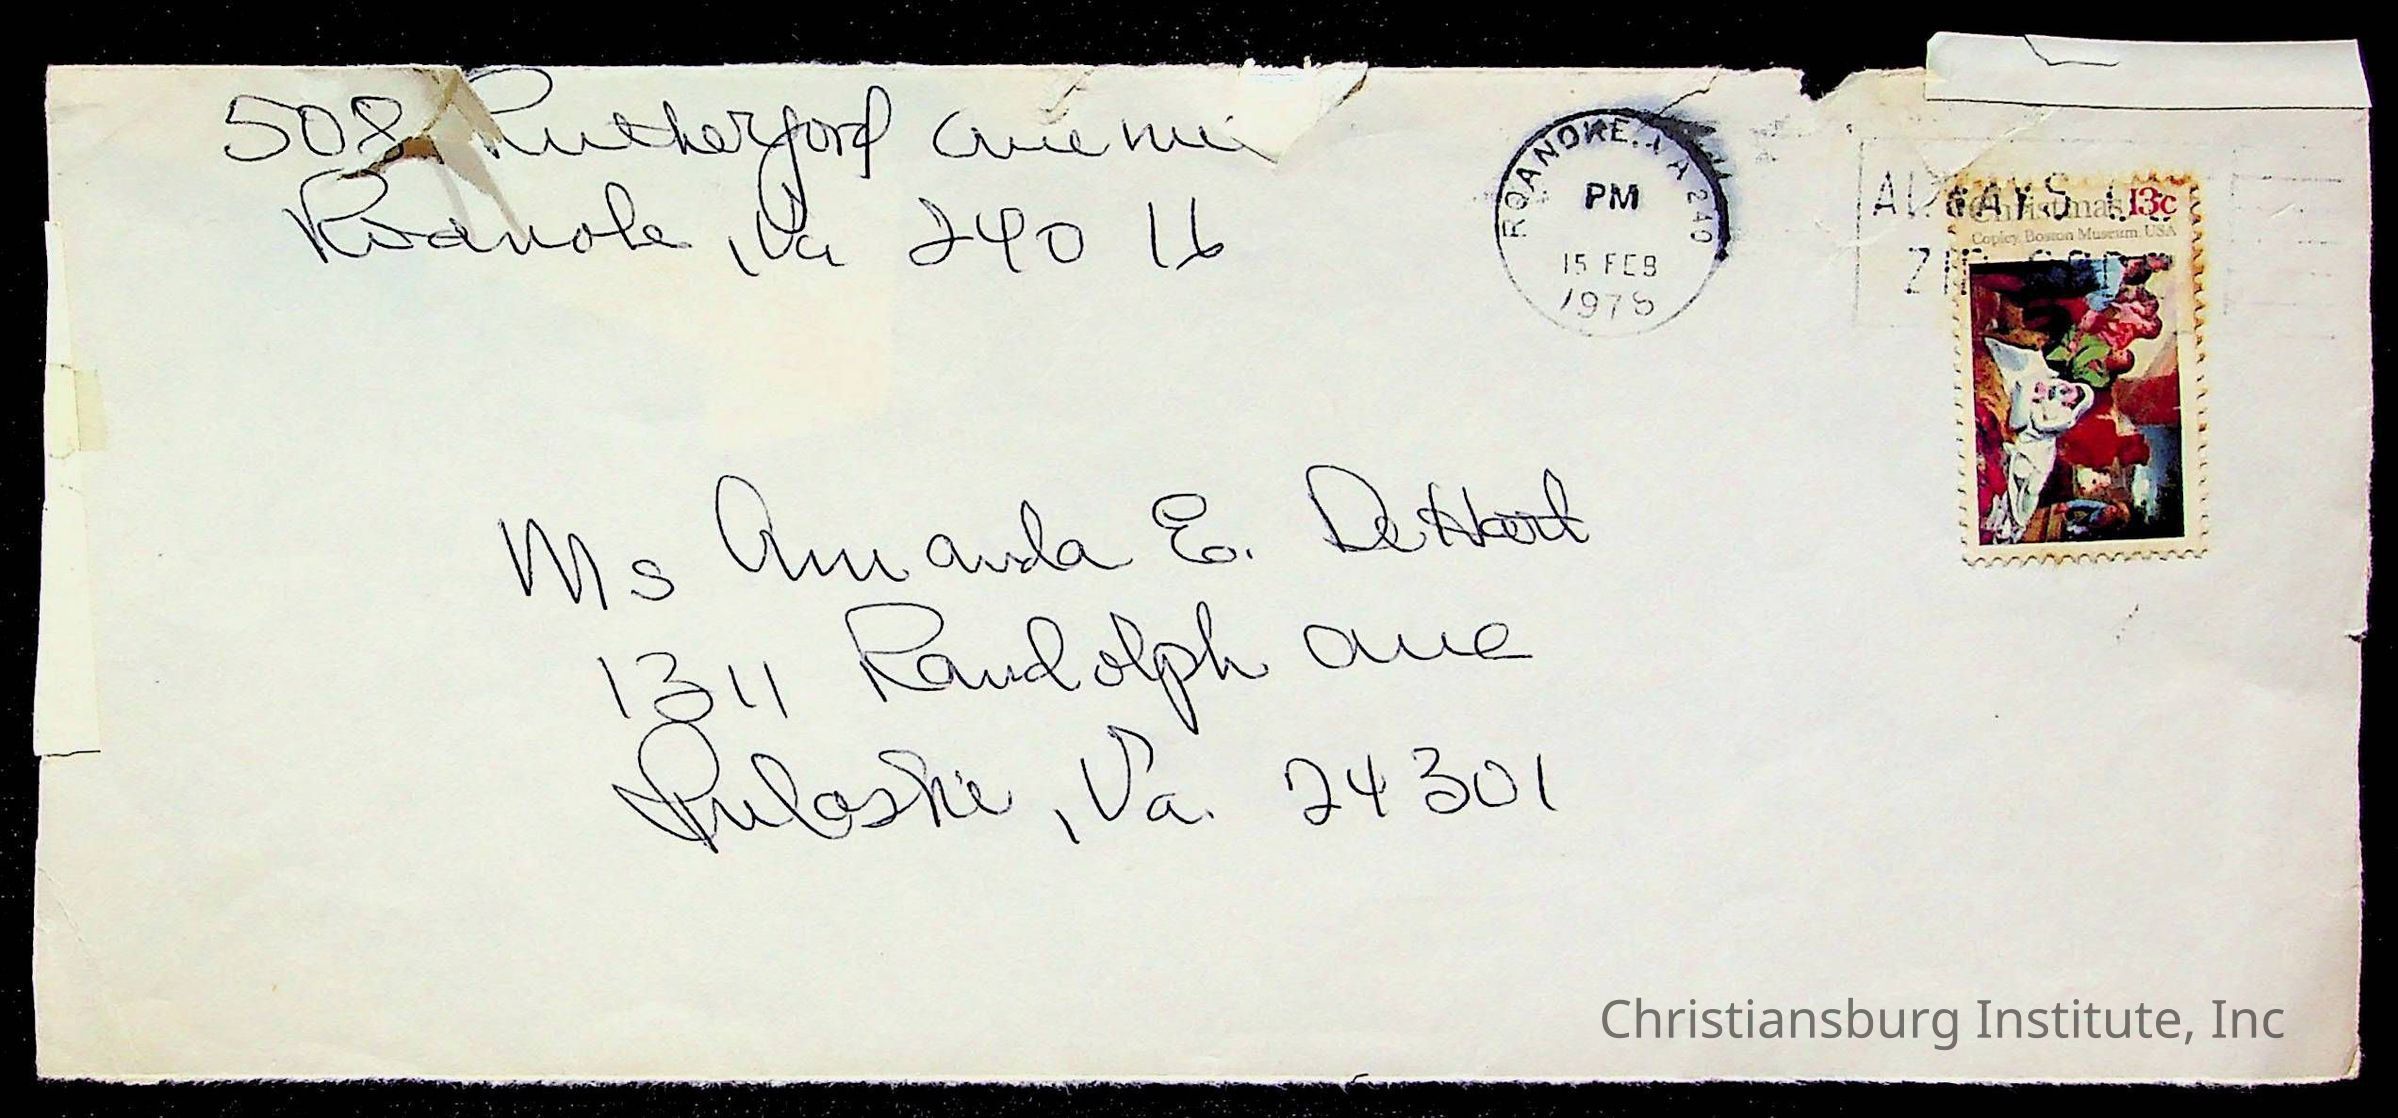 508 Rutherford avenue
Roanoke, Va 24016
ROANOKE, VA 240
PM
15 FEB
1978
ALWAYS
ZIP CODE
Christmas 13c
Copley, Boston Museum USA
Ms Amanda E. DeHart
1311 Randolph ave
Pulaski, Va. 24301
Christiansburg Institute, Inc